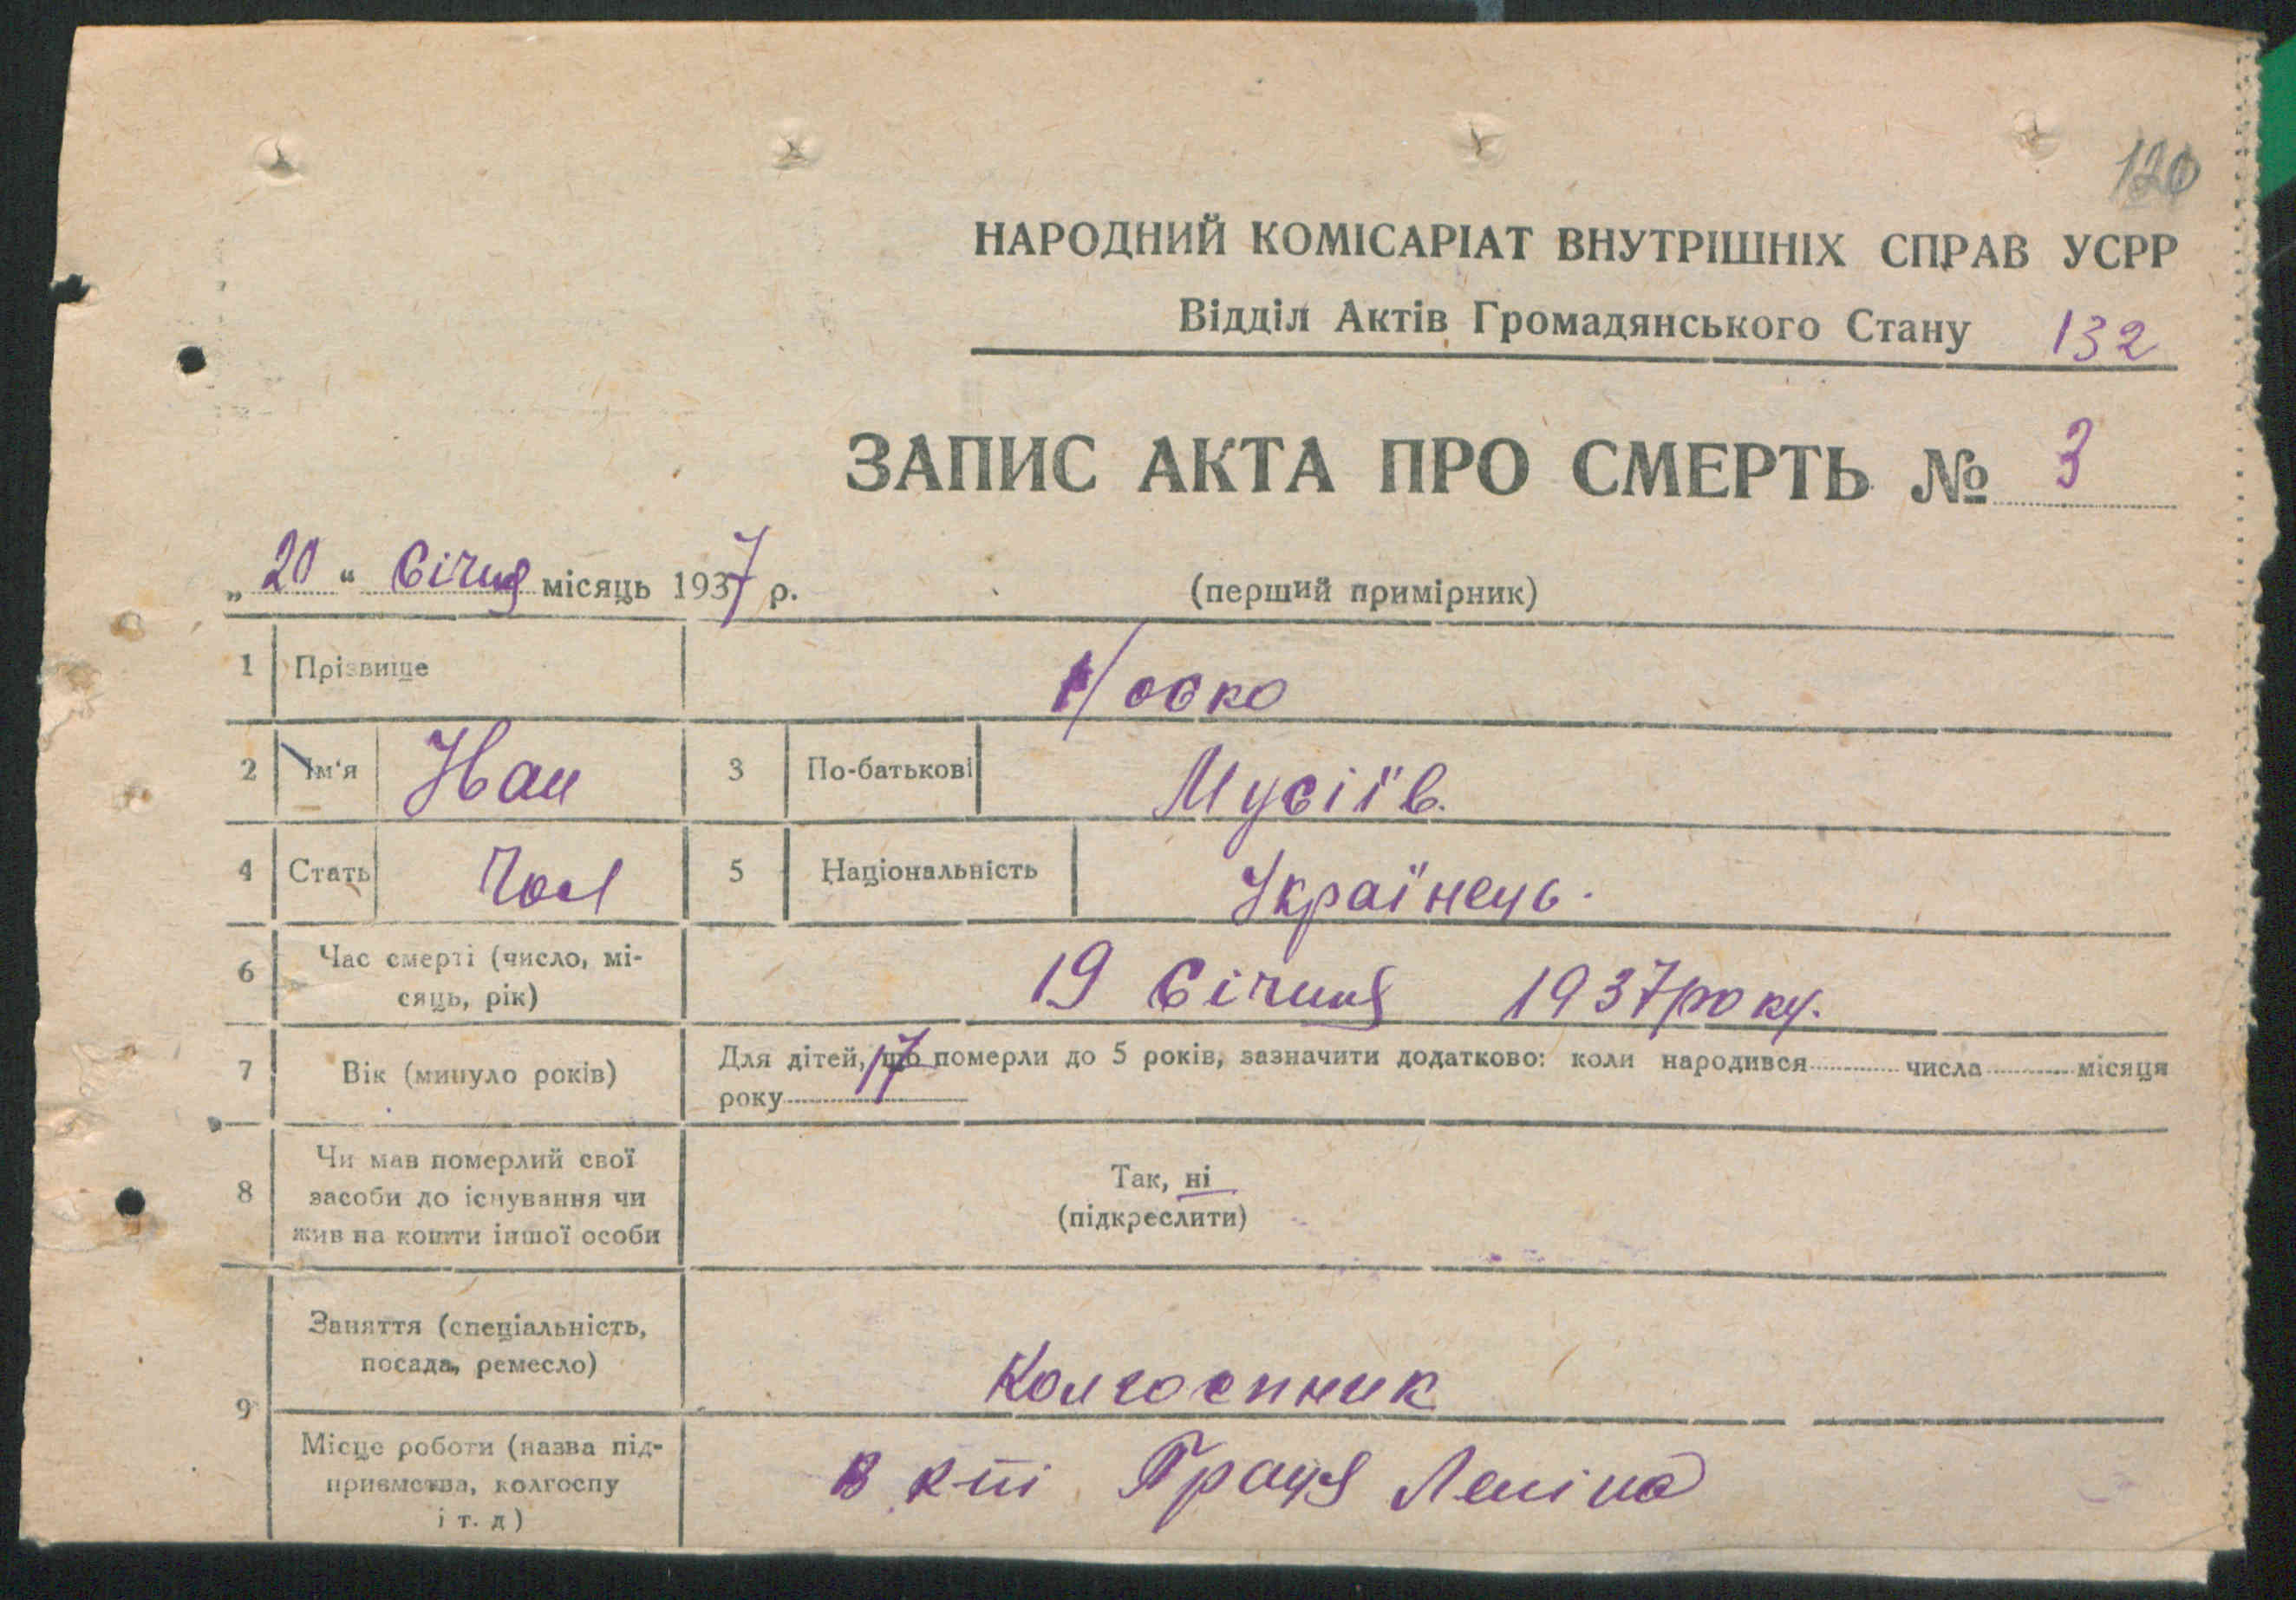 120
НАРОДНИЙ КОМІСАРІАТ ВНУТРІШНІХ СПРАВ УСРР
Відділ Актів Громадянського Стану 132
ЗАПИС АКТА ПРО СМЕРТЬ № 3
„20“ Січня місяць 1937 р. (перший примірник)
1 Прізвище
2 Ім'я Іван 3 По-батькові Мусіїв.
4 Стать Чол 5 Національність Українець.
6 Час смерті (число, мі-
сяць, рік) 19 Січня 1937 року.
7 Вік (минуло років) 17 Для дітей, що померли до 5 років, зазначити додатково: коли народився числа місяця
року
8 Чи мав померлий свої
засоби до існування чи
жив на кошти іншої особи
Так, ні
(підкреслити)
9 Заняття (спеціальність,
посада, ремесло) Колгоспник
Місце роботи (назва під-
приємства, колгоспу
і т. д) в к-пі Праця Леніна